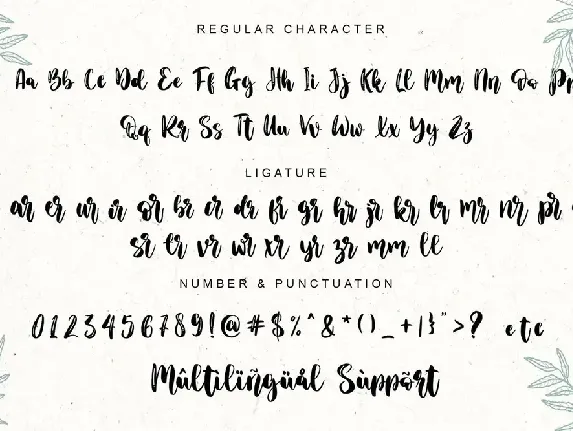 REGULAR CHARACTER
Aa Bb Cc Dd Ee Ff Gg Hh Ii Jj Kk Ll Mm Nn Oo Pp
Qq Rr Ss Tt Uu Vv Ww Xx Yy Zz
LIGATURE
ar er ur ir or br cr dr fr gr hr jr kr lr mr nr pr
sr tr vr wr xr yr zr mm ll
NUMBER & PUNCTUATION
0123456789!@#$%^&*()_+|}">? etc
Mûltilïñgüàl Sùppõrt